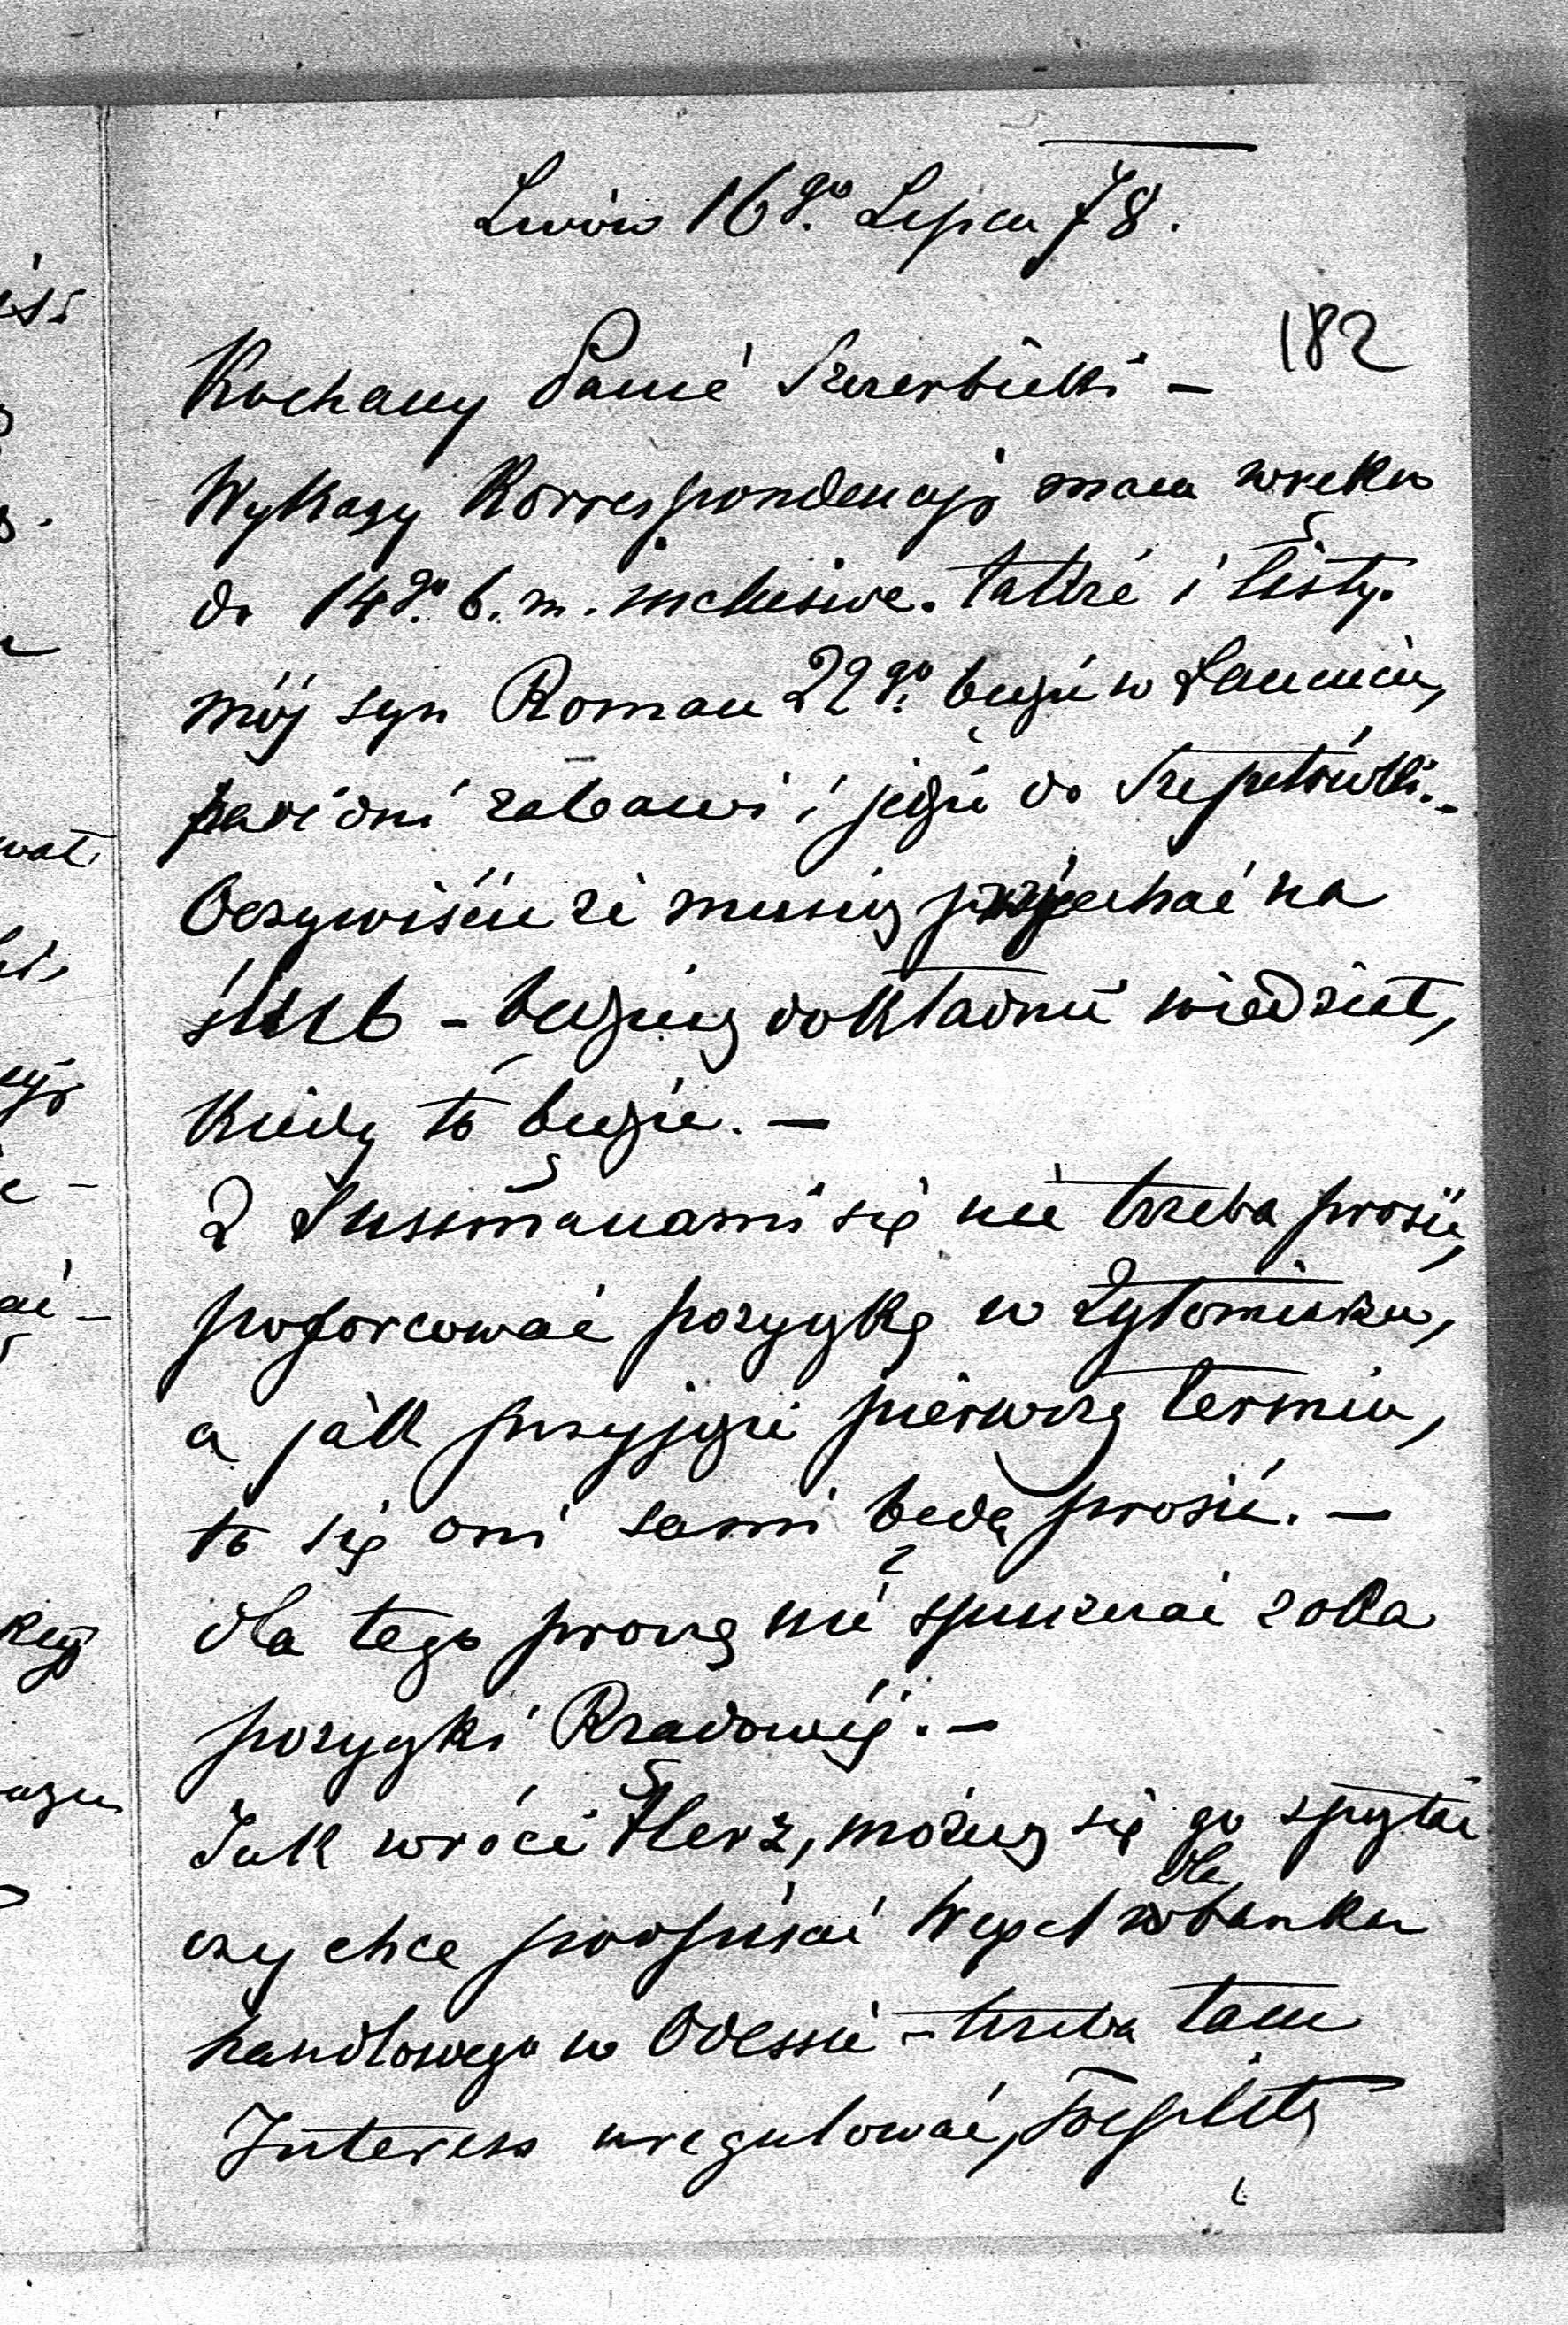 Lwów 16go Lipca 78.
182
Kochany Panie Szczerbicki –
Wykazy Korrespondencyi mam w ręku
do 14go b. m. inclusive. także i listy.
mój syn Roman 22go będzie w Łańcucie,
parę dni zabawi i jedzie do Szepetówki. –
Oczywiście że muszę przyjechać na
ślub – będziesz dokładnie wiedział,
kiedy to będzie. –
Z Sussmanami się nie trzeba prosić,
poforcować pożyczkę w Żytomierzu,
a jak przyjdzie pierwszy termin,
to się oni sami będą prosić. –
dla tego proszę nie spuszczać z oka
pożyczki Rządowéj. –
Jak wróci Herz, możesz się go spytać
czy chce podpisać Wexel dla banku
handlowego w Odessie – trzeba tam
Interess uregulować,